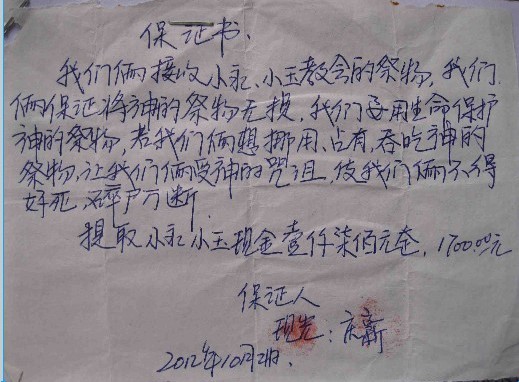 保证书.
我们俩接收小永、小玉教会的祭物,我们
俩保证将神的祭物无损,我们要用生命保护
神的祭物,若我们俩想挪用、占有、吞吃神的
祭物,让我们俩受神的咒诅,使我们俩不得
好死 碎尸万断
提取小永 小玉现金壹仟柒佰元整, 1700.00元
保证人
现先:庆新
2012年10月2日.